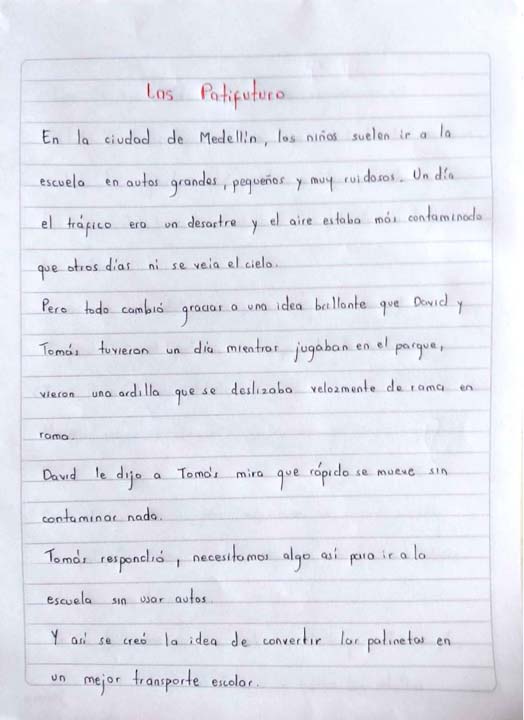 Las Patifuturo
En la ciudad de Medellín, los niños suelen ir a la
escuela en autos grandes, pequeños y muy ruidosos. Un día
el tráfico era un desartre y el aire estaba más contaminado
que otros días ni se veía el cielo.
Pero todo cambió gracias a una idea brillante que David y
Tomás tuvieron un día mientras jugaban en el parque,
vieron una ardilla que se deslizaba velozmente de rama en
rama.
David le dijo a Tomás mira que rápido se mueve sin
contaminar nada.
Tomás respondió, necesitamos algo así para ir a la
escuela sin usar autos.
Y así se creó la idea de convertir las patinetas en
un mejor transporte escolar.